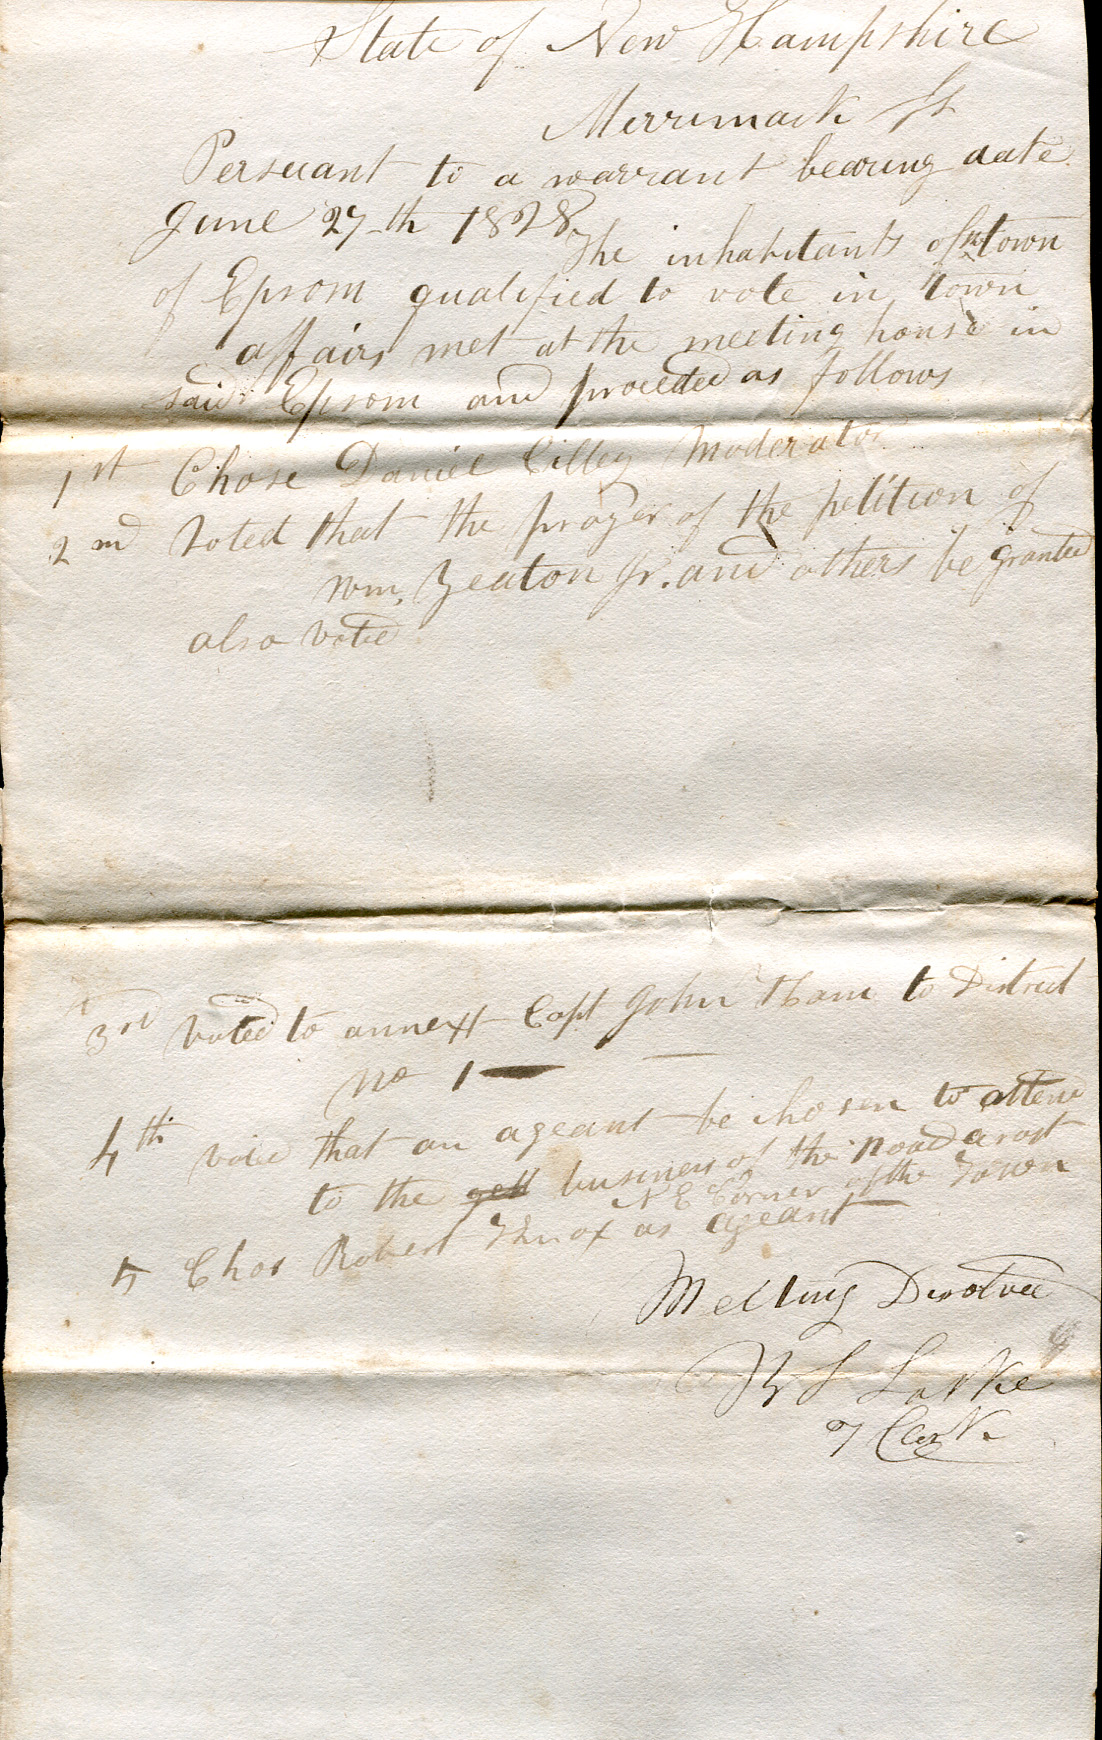 State of New Hampshire
Merrimack ss
Persuant to a warrant bearing date
June 27th 1828,
The inhabitants of town
of Epsom qualified to vote in town
affairs met at the meeting house in
said Epsom and proceded as follows
1st Chose Daniel Cilley Moderator
2nd Voted that the prayer of the petition of
Wm. Yeaton Jr. and others be granted
also voted
3rd Voted to annext Capt John Ham to District
No 1
4th vote that an ageant be chosen to attend
to the business of the road acrost
N E Corner of the Town
5 Chos Robert Knox as ageant
Meeting Desolved
B L Locke
T Clerk